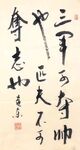 三軍可奪帥
也匹夫不可
奪志也